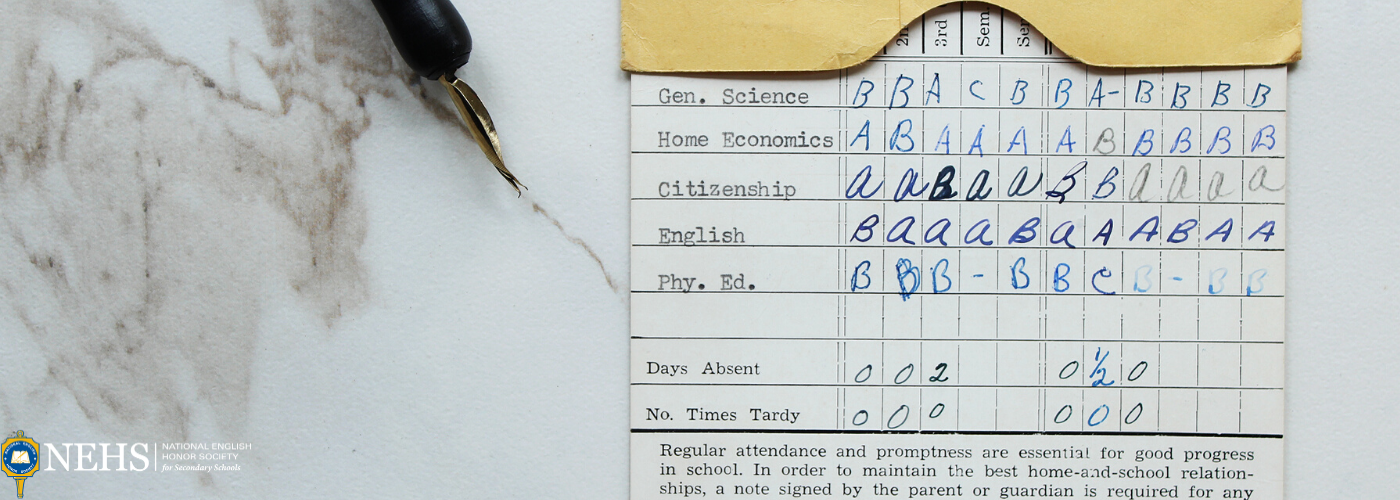 2n 3rd Sem. Se
Gen. Science B B A C B B A- B B B B
Home Economics A B A A A A B B B B B
Citizenship a a B a a B B a a a a
English B a a a B a A A B A A
Phy. Ed. B B B - B B C B - B B
Days Absent 0 0 2 0 1/2 0
No. Times Tardy 0 0 0 0 0 0
Regular attendance and promptness are essential for good progress
in school. In order to maintain the best home-and-school relation-
ships, a note signed by the parent or guardian is required for any
NEHS
NATIONAL ENGLISH
HONOR SOCIETY
for Secondary Schools